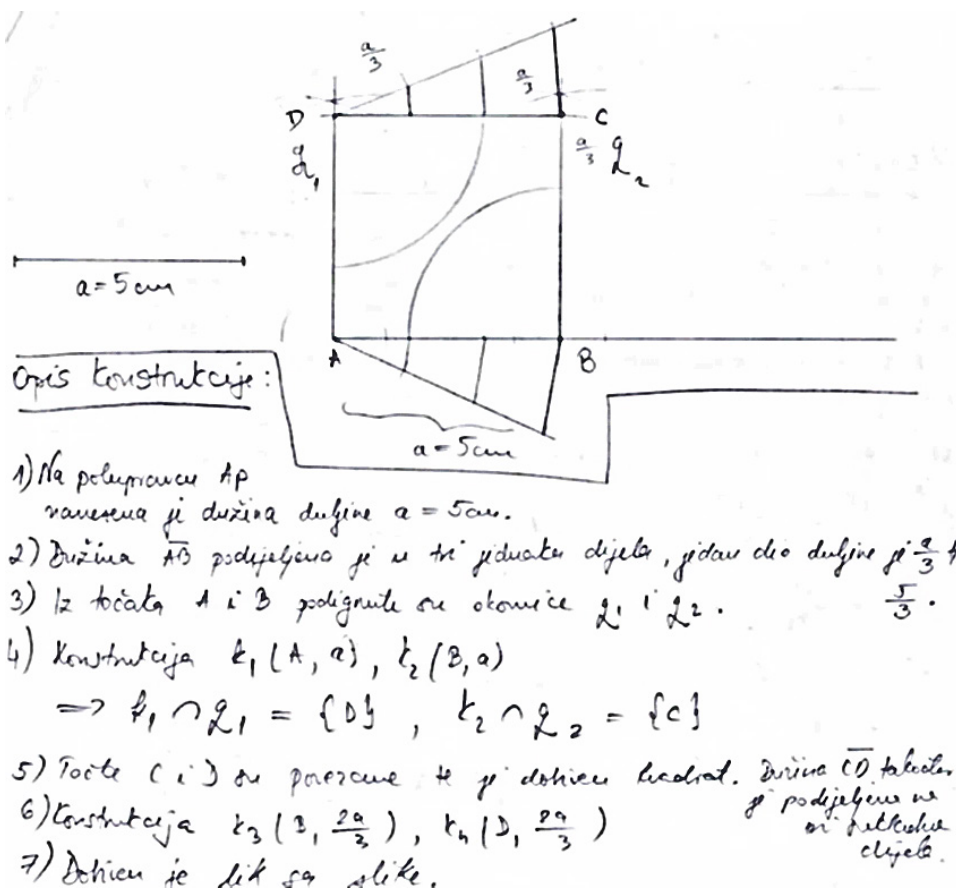 a/3
a/3
D
C
g₁
a/3 g₂
a = 5 cm
A
B
Opis konstrukcije:
a = 5 cm
1) Na polupravcu Ap
nanesena je dužina duljine a = 5 cm.
2) Dužina A̅B̅ podijeljena je u tri jednaka dijela, jedan dio duljine je a/3
5/3.
3) Iz točaka A i B podignute su okomice g₁ i g₂.
4) Konstrukcija k₁ (A, a), k₂ (B, a)
=> k₁ ∩ g₁ = {D}, k₂ ∩ g₂ = {C}
5) Točke C i D su povezane te je dobiven kvadrat. Dužina C̅D̅ također
je podijeljena na
tri dijela.
6) Konstrukcija k₃ (B, 2a/3), k₄ (D, 2a/3)
7) Dobiven je lik sa slike.